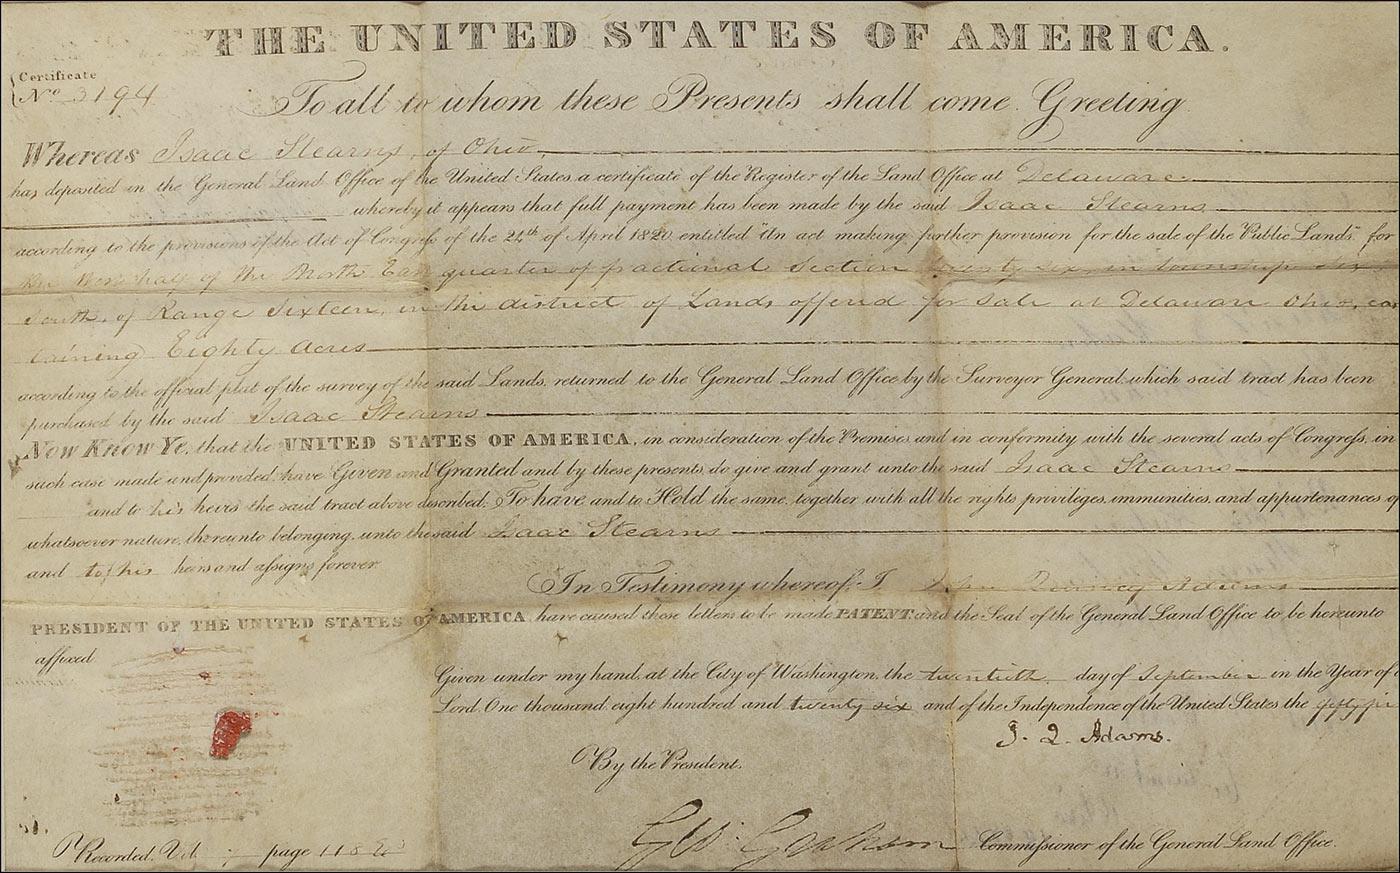 THE UNITED STATES OF AMERICA.
Certificate
No 3194
To all to whom these Presents shall come Greeting
Whereas Isaac Stearns, of Ohio,
has deposited in the General Land Office of the United States a certificate of the Register of the Land Office at Delaware
whereby it appears that full payment has been made by the said Isaac Stearns
according to the provisions of the Act of Congress of the 24th of April 1820 entitled "An act making further provision for the sale of the Public Lands," for
the West half of the North East quarter of fractional Section twenty six, in township Six
South, of Range Sixteen, in the district of Lands offered for sale at Delaware Ohio, con
taining Eighty Acres
according to the official plat of the survey of the said Lands, returned to the General Land Office by the Surveyor General, which said tract has been
purchased by the said Isaac Stearns
Now Know Ye, that the UNITED STATES OF AMERICA, in consideration of the Premises and in conformity with the several acts of Congress, in
such case made and provided, have Given and Granted and by these presents, do give and grant unto the said Isaac Stearns
and to his heirs the said tract above described: To have and to Hold the same, together with all the rights privileges, immunities, and appurtenances of
whatsoever nature, thereunto belonging, unto the said Isaac Stearns
and to his heirs and assigns forever
In Testimony whereof, I John Quincy Adams
PRESIDENT OF THE UNITED STATES OF AMERICA, have caused these letters to be made PATENT and the Seal of the General Land Office to be hereunto
affixed
Given under my hand, at the City of Washington, the twentieth day of September in the Year of
Lord, One thousand eight hundred and twenty six and of the Independence of the United States the fifty
J. Q. Adams.
By the President.
Geo: Graham Commissioner of the General Land Office.
Recorded, Vol. page 118